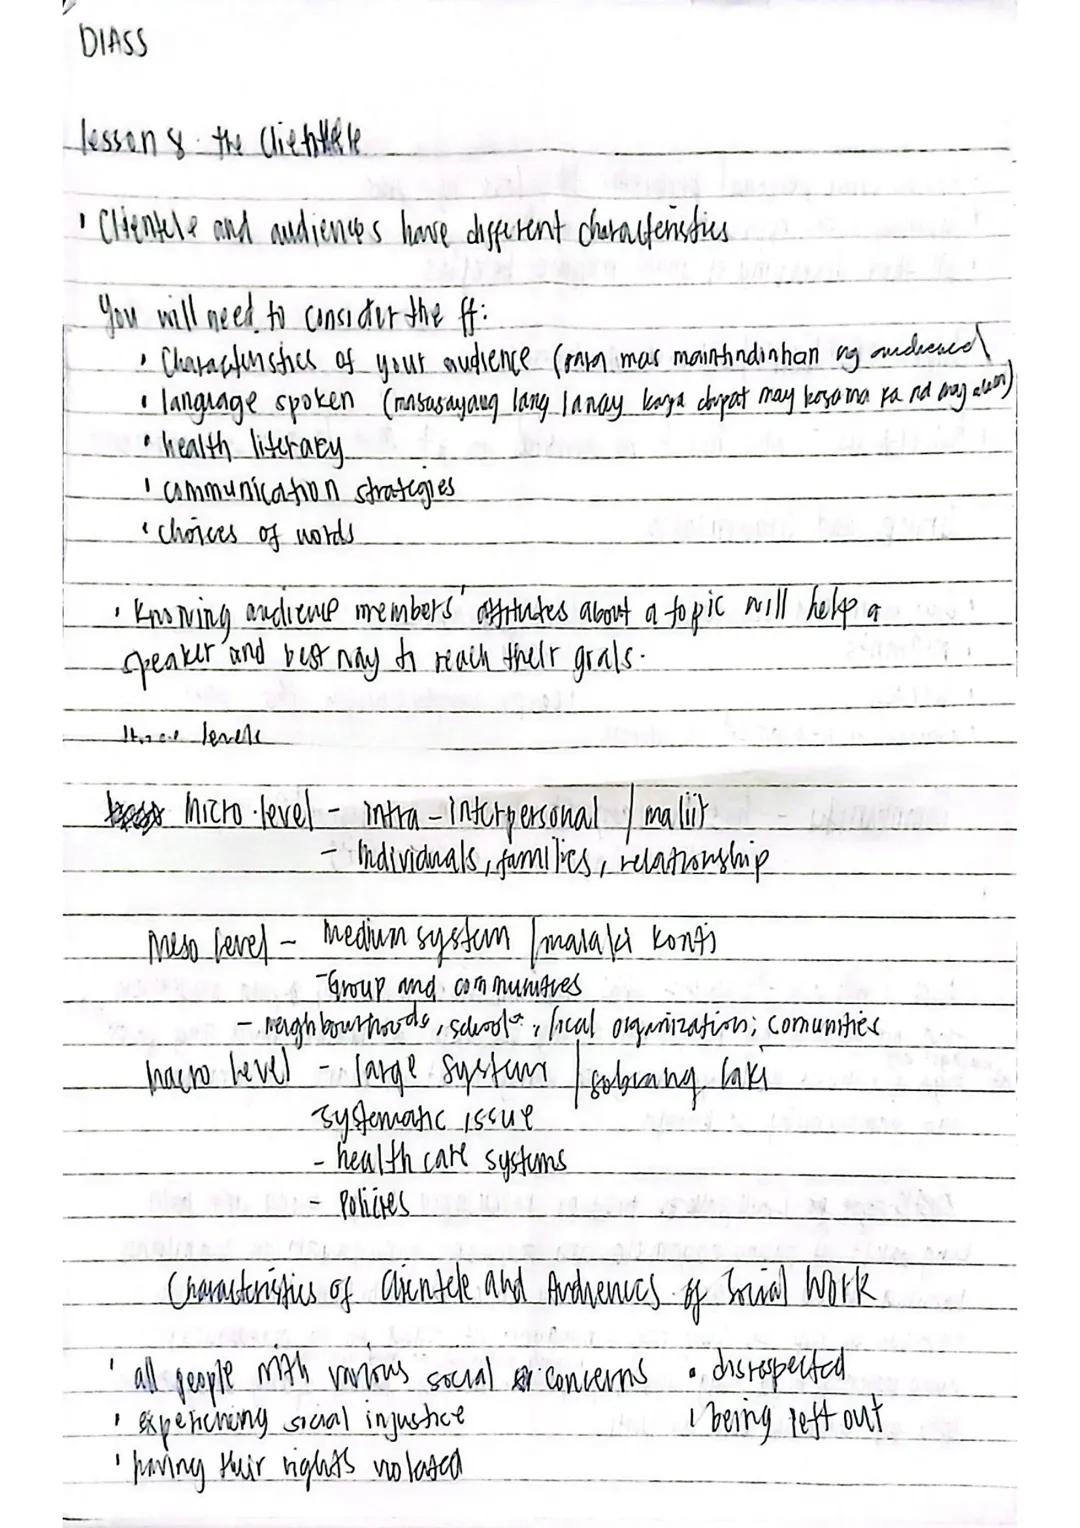 DIASS
lesson 8: the Clientele
• Clientele and audiences have different characteristics
You will need to consider the ff:
• Characteristics of your audience (para mas maintindihan ag audience)
• language spoken (masasayang lang laway kaya dapat may kasama ka na mag)
• health literacy
• communication strategies
• choices of words
• Knowing audience members' attitutes about a topic will help a
speaker and best way to reach their goals.
three levels
Micro-level - intra-interpersonal / maliit
- Individuals, families, relationship
Meso level - medium system / malaki konti
- Group and communities
- neighbourhoods, schools, local organization; comunities
macro level - large system / sobrang laki
systematic issue
- health care systems
- Policies
Characteristics of Clientele and Audiences of Social Work
• all people with various social concerns • disrespected
• experiencing social injustice • being left out
• having their rights violated